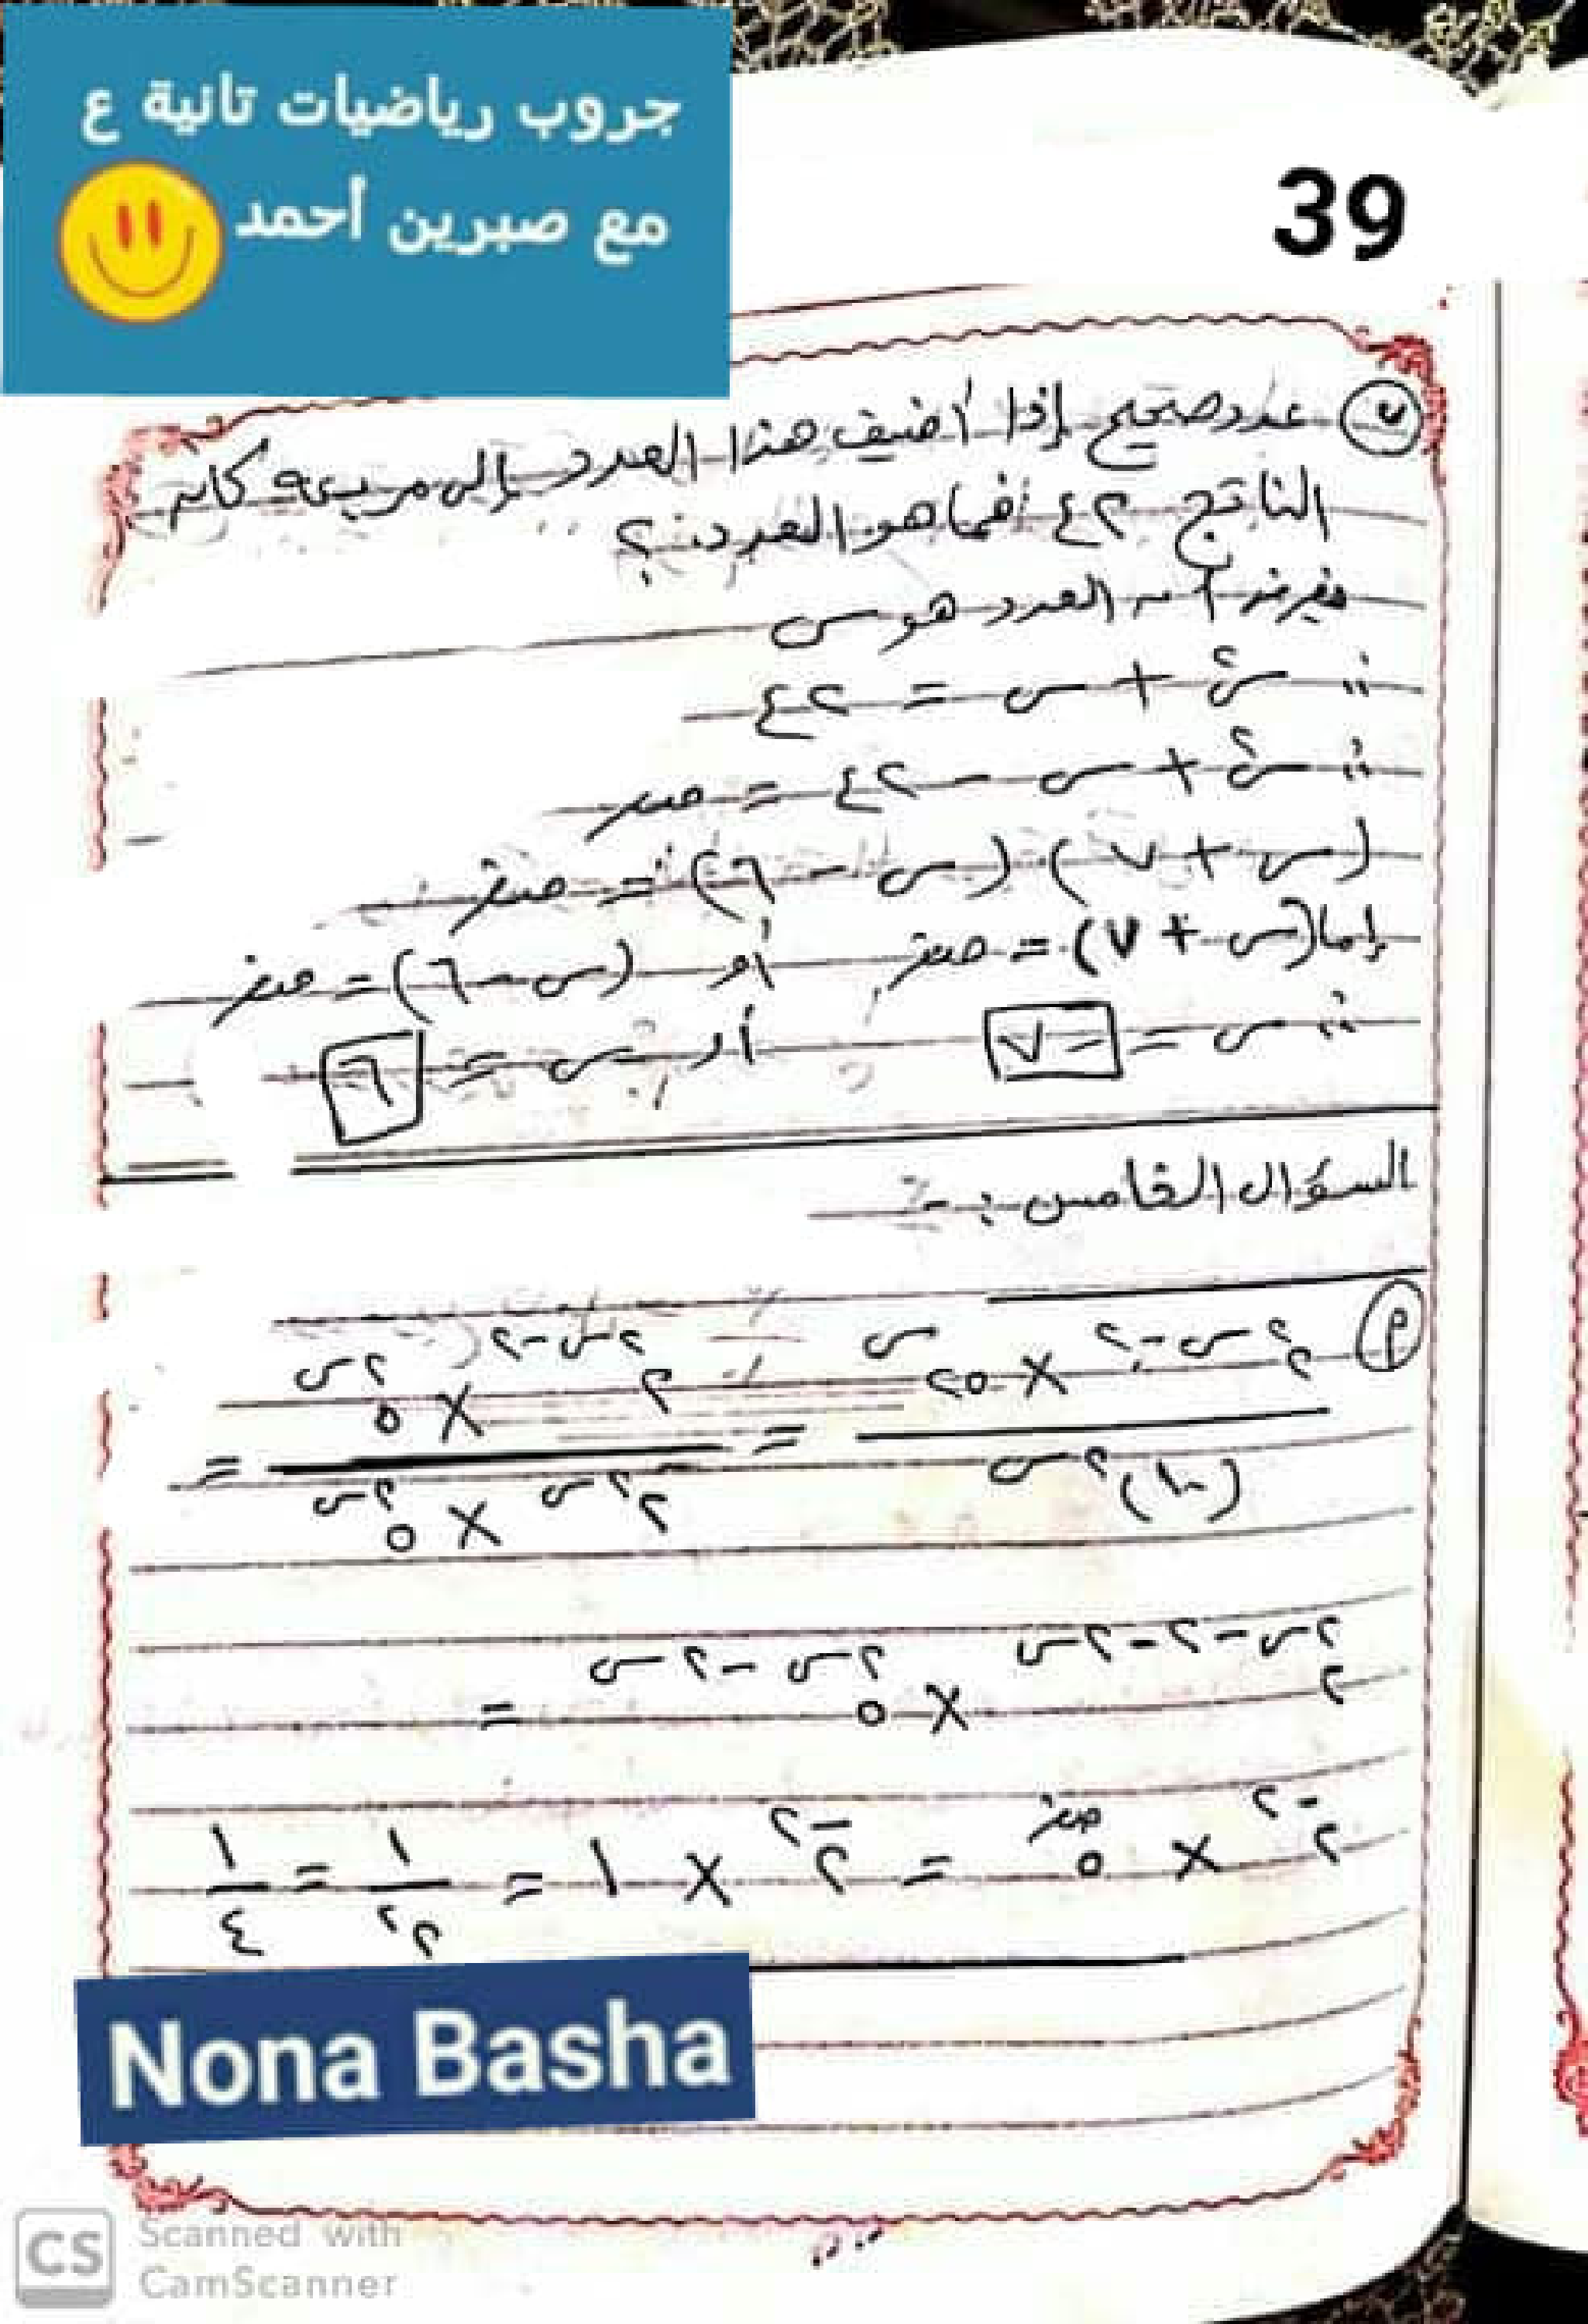 جروب رياضيات تانية ع
مع صبرين أحمد
39
(ب) عدد صحيح إذا أضيف هذا العدد إلى مربعه كان
الناتج ٤٢ فما هو العدد؟
بفرض أن العدد هو س
∴ س٢ + س = ٤٢
∴ س٢ + س - ٤٢ = صفر
(س + ٧) (س - ٦) = صفر
إما (س + ٧) = صفر أو (س - ٦) = صفر
∴ س = -٧ أو س = ٦
السؤال الخامس :-
(أ) ٢^(٢س-٢) × ٢٥^س / (١٠)^٢س = ٢^(٢س-٢) × ٥^٢س / ٢^٢س × ٥^٢س =
٢^(٢س-٢-٢س) × ٥^(٢س-٢س) =
٢^-٢ × ٥^صفر = ٢^-٢ × ١ = ١/٢^٢ = ١/٤
Nona Basha
CS Scanned with
CamScanner